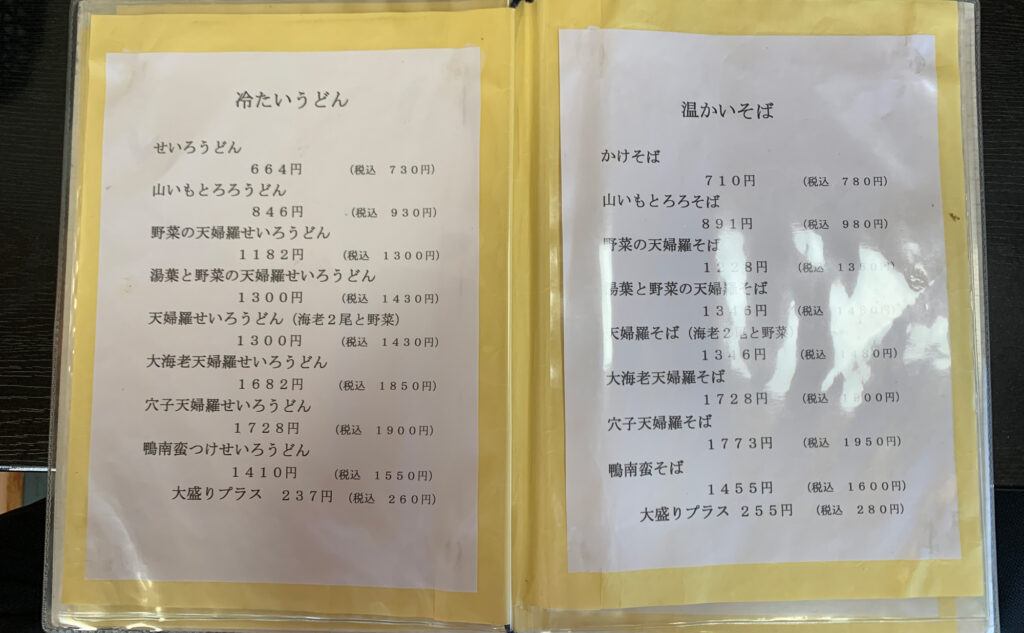 冷たいうどん
せいろうどん
664円 (税込 730円)
山いもとろろうどん
846円 (税込 930円)
野菜の天婦羅せいろうどん
1182円 (税込 1300円)
湯葉と野菜の天婦羅せいろうどん
1300円 (税込 1430円)
天婦羅せいろうどん(海老2尾と野菜)
1300円 (税込 1430円)
大海老天婦羅せいろうどん
1682円 (税込 1850円)
穴子天婦羅せいろうどん
1728円 (税込 1900円)
鴨南蛮つけせいろうどん
1410円 (税込 1550円)
大盛りプラス 237円 (税込 260円)
温かいそば
かけそば
710円 (税込 780円)
山いもとろろそば
891円 (税込 980円)
野菜の天婦羅そば
1228円 (税込 1350円)
湯葉と野菜の天婦羅そば
1346円 (税込 1480円)
天婦羅そば(海老2尾と野菜)
1346円 (税込 1480円)
大海老天婦羅そば
1728円 (税込 1900円)
穴子天婦羅そば
1773円 (税込 1950円)
鴨南蛮そば
1455円 (税込 1600円)
大盛りプラス 255円 (税込 280円)